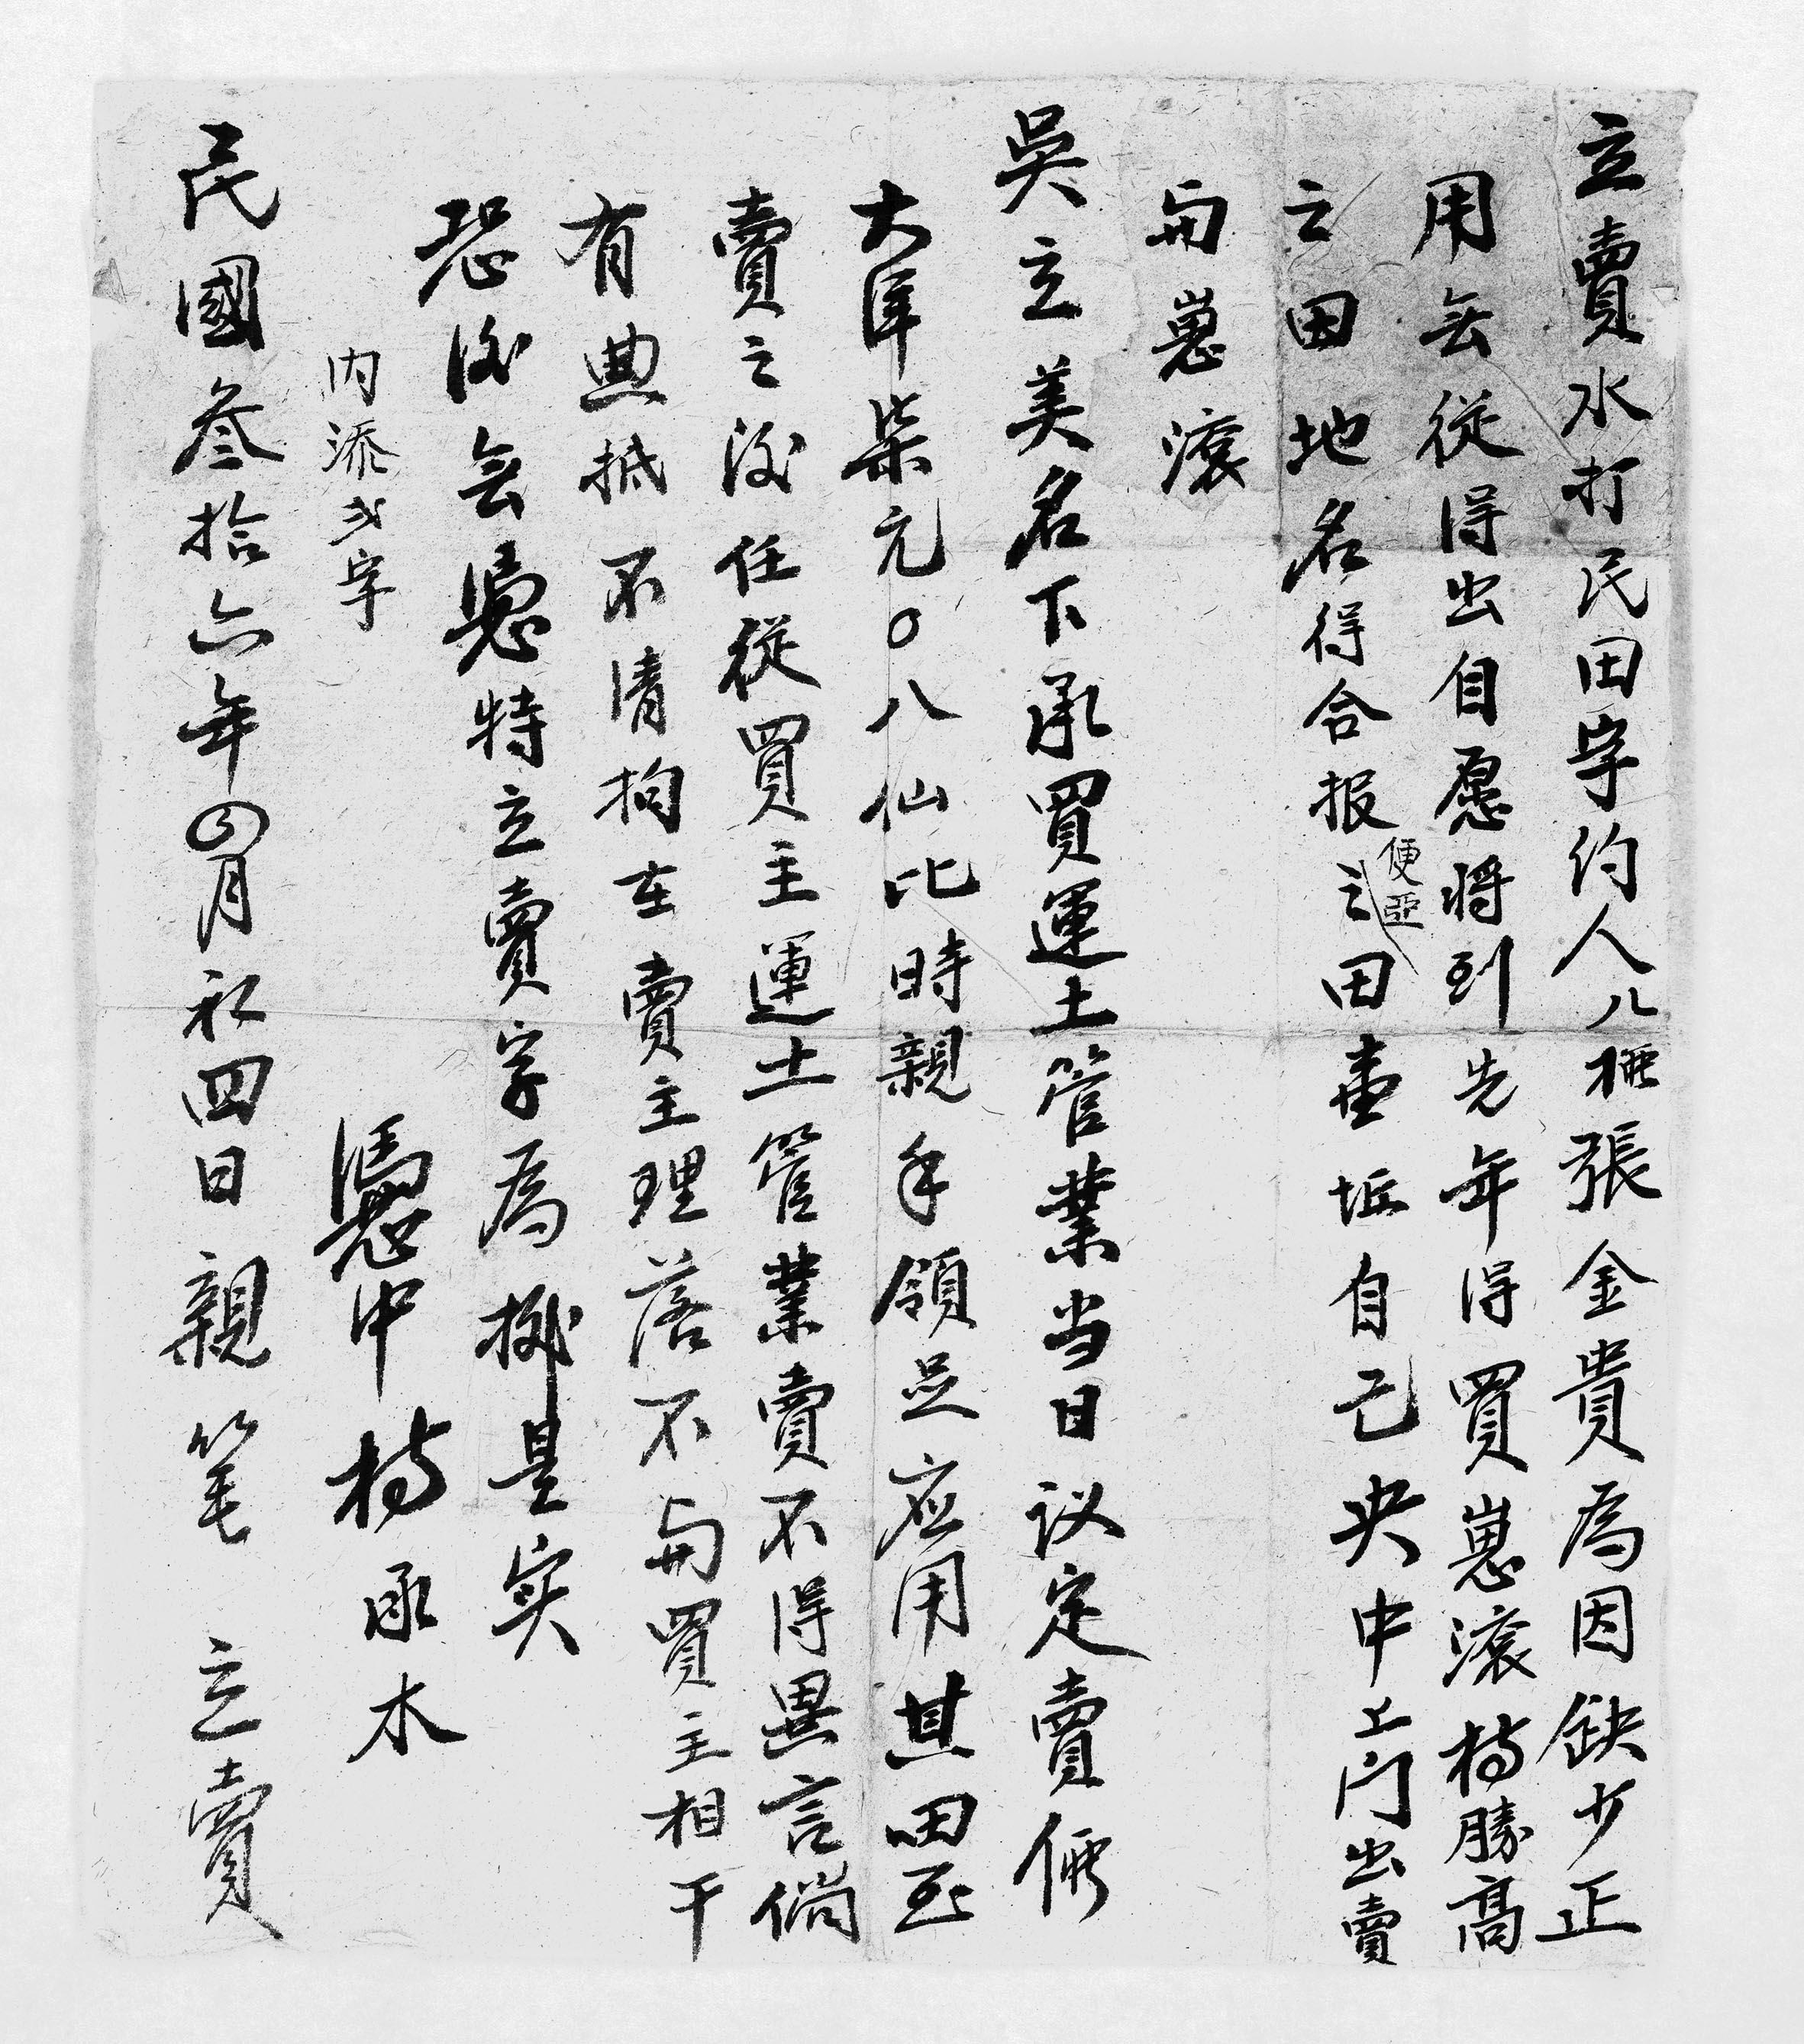 立賣水打民田字約人八極張金貴為因缺少正
用無從得出自愿將到先年得買崽滾楊勝高
之田地名得合报之田壹坵自己央中上门出賣
便亞
与崽滾
吳立美名下承買運土管業当日议定賣價
大洋柒元〇八仙比時親手領足应用其田至
賣之後任從買主運土管業賣不得異言倘
有典抵不清拘在賣主理落不与買主相干
恐後無憑特立賣字為據是实
内添弍字
憑中楊承木
民國叁拾六年四月初四日親笔立賣